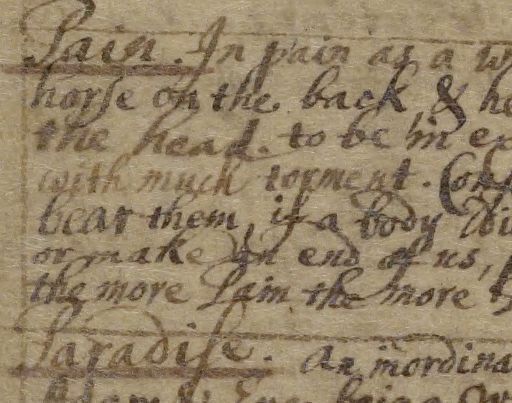 Pain. In pain as a w
horse on the back, & he
the head. to be in ex
with much torment. Cons
bear them, if a body
or make an end of us,
the more Pain the more
Paradise. An inordina
Adam & Eve being